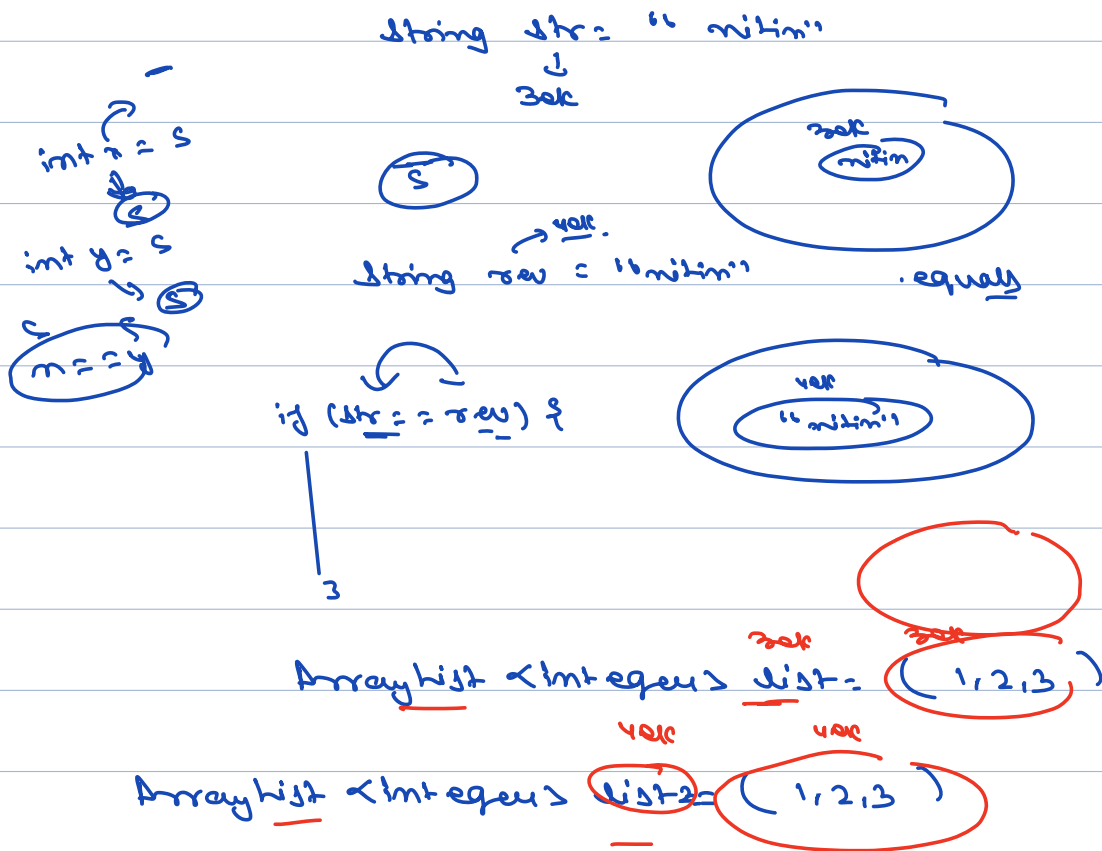 String str = "nitin"
30k
int x = 5
5
5
30k
nitin
int y = 5
5
40k.
String rev = "nitin"
.equals
x == y
if (str == rev) {
40k
"nitin"
}
30k
30k
ArrayList <Integer> list = (1,2,3)
40k
40k
ArrayList <Integer> list2 = (1,2,3)